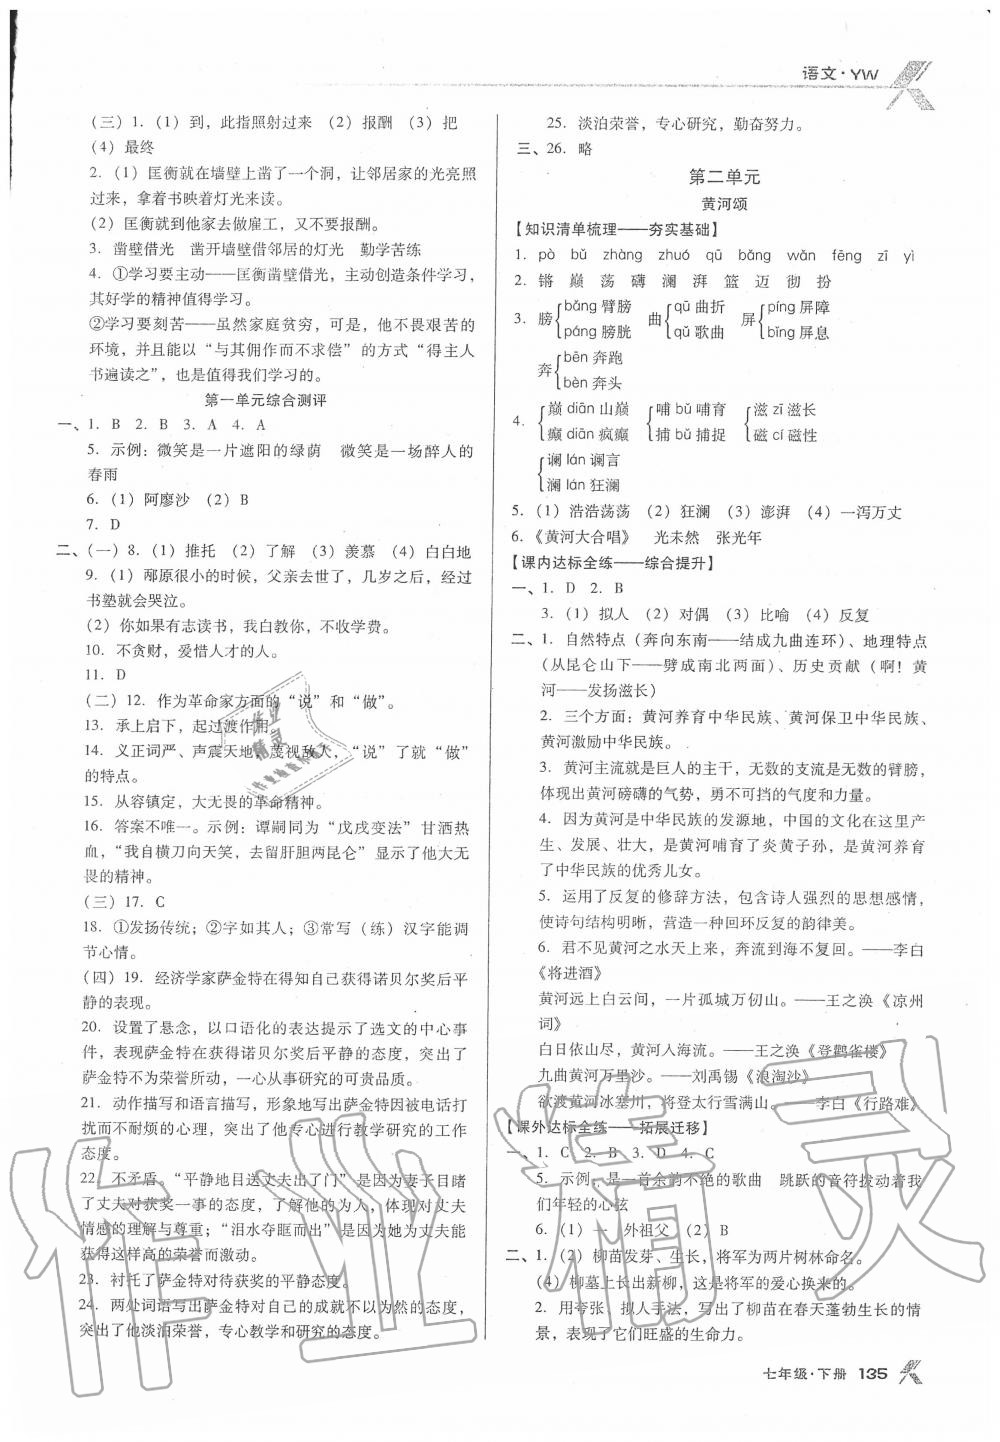 语文·YW
(三) 1. (1) 到，此指照射过来 (2) 报酬 (3) 把
(4) 最终
2. (1) 匡衡就在墙壁上凿了一个洞，让邻居家的光亮照
过来，拿着书映着灯光来读。
(2) 匡衡就到他家去做雇工，又不要报酬。
3. 凿壁借光 凿开墙壁借邻居的灯光 勤学苦练
4. ①学习要主动——匡衡凿壁借光，主动创造条件学习，
其好学的精神值得学习。
②学习要刻苦——虽然家庭贫穷，可是，他不畏艰苦的
环境，并且能以“与其佣作而不求偿”的方式“得主人
书遍读之”，也是值得我们学习的。
第一单元综合测评
一、1. B 2. B 3. A 4. A
5. 示例：微笑是一片遮阳的绿荫 微笑是一场醉人的
春雨
6. (1) 阿廖沙 (2) B
7. D
二、(一) 8. (1) 推托 (2) 了解 (3) 羡慕 (4) 白白地
9. (1) 邴原很小的时候，父亲去世了，几岁之后，经过
书塾就会哭泣。
(2) 你如果有志读书，我白教你，不收学费。
10. 不贪财，爱惜人才的人。
11. D
(二) 12. 作为革命家方面的“说”和“做”。
13. 承上启下，起过渡作用。
14. 义正词严、声震天地，蔑视敌人，“说”了就“做”
的特点。
15. 从容镇定，大无畏的革命精神。
16. 答案不唯一。示例：谭嗣同为“戊戌变法”甘洒热
血，“我自横刀向天笑，去留肝胆两昆仑”显示了他大无
畏的精神。
(三) 17. C
18. ①发扬传统；②字如其人；③常写（练）汉字能调
节心情。
(四) 19. 经济学家萨金特在得知自己获得诺贝尔奖后平
静的表现。
20. 设置了悬念，以口语化的表达提示了选文的中心事
件，表现萨金特在获得诺贝尔奖后平静的态度，突出了
萨金特不为荣誉所动，一心从事研究的可贵品质。
21. 动作描写和语言描写，形象地写出了萨金特因被电话打
扰而不耐烦的心理，突出了他专心进行教学研究的工作
态度。
22. 不矛盾。“平静地目送丈夫出了门”是因为妻子目睹
了丈夫对获奖一事的态度，了解他的为人，体现对丈夫
情感的理解与尊重；“泪水夺眶而出”是因为她为丈夫能
获得这样高的荣誉而激动。
23. 衬托了萨金特对待获奖的平静态度。
24. 两处词语写出萨金特对自己的成就不以为然的态度，
突出了他淡泊荣誉，专心教学和研究的态度。
25. 淡泊荣誉，专心研究，勤奋努力。
三、26. 略
第二单元
黄河颂
【知识清单梳理——夯实基础】
1. pò bǔ zhàng zhuó qū bǎng wǎn fēng zī yì
2. 锵 巅 荡 礴 澜 湃 篮 迈 彻 扮
3. 膀 bǎng 臂膀 páng 膀胱 曲 qū 曲折 qǔ 歌曲 屏 píng 屏障 bǐng 屏息
奔 bēn 奔跑 bèn 奔头
4. 巅 diān 山巅 癫 diān 疯癫 哺 bǔ 哺育 捕 bǔ 捕捉 滋 zī 滋长 磁 cí 磁性
谰 lán 谰言 澜 lán 狂澜
5. (1) 浩浩荡荡 (2) 狂澜 (3) 澎湃 (4) 一泻万丈
6.《黄河大合唱》 光未然 张光年
【课内达标全练——综合提升】
一、1. D 2. B
3. (1) 拟人 (2) 对偶 (3) 比喻 (4) 反复
二、1. 自然特点（奔向东南——结成九曲连环）、地理特点
（从昆仑山下——劈成南北两面）、历史贡献（啊！黄
河——发扬滋长）
2. 三个方面：黄河养育中华民族、黄河保卫中华民族、
黄河激励中华民族。
3. 黄河主流就是巨人的主干，无数的支流是无数的臂膀，
体现出黄河磅礴的气势，勇不可挡的气度和力量。
4. 因为黄河是中华民族的发源地，中国的文化在这里产
生、发展、壮大，是黄河哺育了炎黄子孙，是黄河养育
了中华民族的优秀儿女。
5. 运用了反复的修辞方法，包含诗人强烈的思想感情，
使诗句结构明晰，营造一种回环反复的韵律美。
6. 君不见黄河之水天上来，奔流到海不复回。——李白
《将进酒》
黄河远上白云间，一片孤城万仞山。——王之涣《凉州
词》
白日依山尽，黄河入海流。——王之涣《登鹳雀楼》
九曲黄河万里沙。——刘禹锡《浪淘沙》
欲渡黄河冰塞川，将登太行雪满山。——李白《行路难》
【课外达标全练——拓展迁移】
一、1. C 2. B 3. D 4. C
5. 示例：是一首余韵不绝的歌曲 跳跃的音符拨动着我
们年轻的心弦
6. (1) 一 外祖父 (2) B
二、1. (2) 柳苗发芽、生长，将军为两片树林命名。
(4) 柳墓上长出新柳，这是将军的爱心换来的。
2. 用夸张、拟人手法，写出了柳苗在春天蓬勃生长的情
景，表现了它们旺盛的生命力。
七年级·下册 135
作业精灵